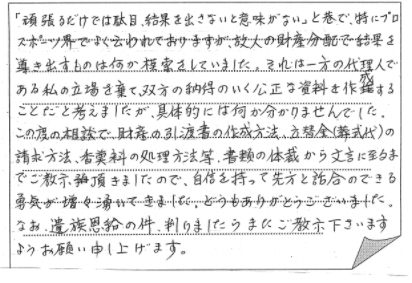 「頑張るだけでは駄目、結果を出さないと意味がない」と巷で、特にプロ
スポーツ界でよく云われておりますが、故人の財産分配で結果を
導き出すものは何か模索をしていました。それは一方の代理人で
ある私の立場を棄て、双方の納得のいく公正な資料を作成する
ことだと考えましたが、具体的には何か分かりませんでした。
この度の相談で、財産の引渡書の作成方法、立替金(葬式代)の
請求方法、香典料の処理方法等、書類の体裁から文言に至るま
でご教示頂きましたので、自信を持って先方と話合のできる
勇気が増々湧いてきました。どうもありがとうございました。
なお、遺族恩給の件、判りましたらまたご教示下さいます
ようお願い申し上げます。